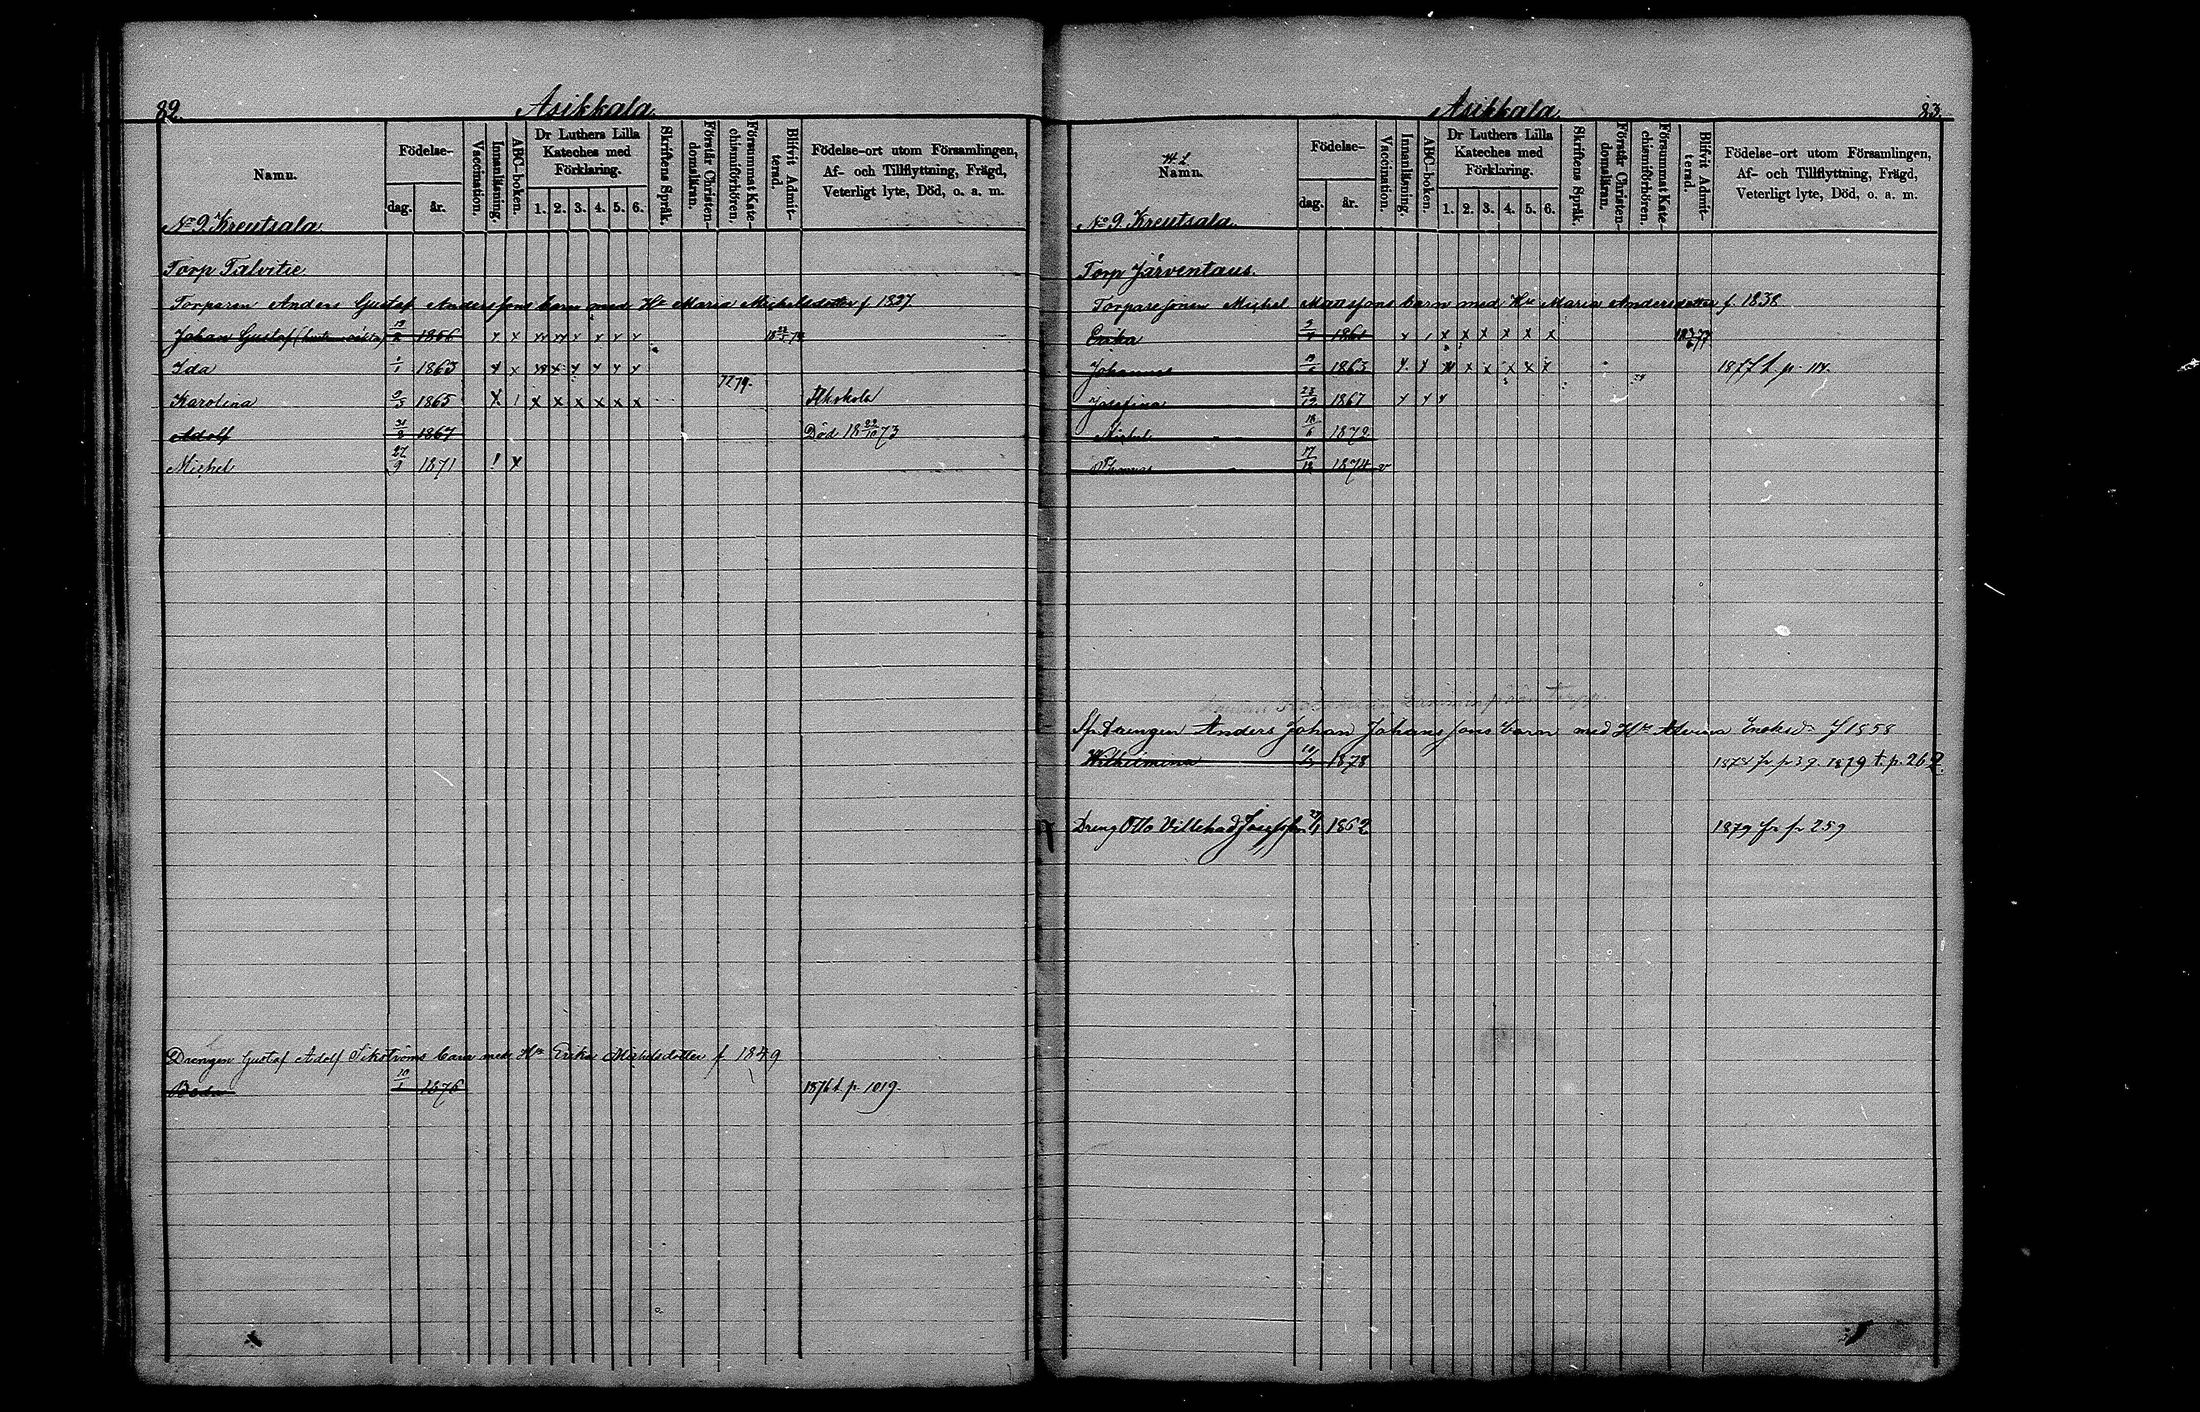 82.
Asikkala.
Namn.
Födelse-
dag.
år.
Vaccination.
Innanläsning.
ABC-boken.
Dr Luthers Lilla
Kateches med
Förklaring.
1. 2. 3. 4. 5. 6.
Skriftens Språk.
Förstår Christen-
domsläran.
Försummat Kate-
chismiförhören.
Blifvit Admit-
terad.
Födelse-ort utom Församlingen,
Af- och Tillflyttning, Frägd,
Veterligt lyte, Död, o. a. m.
No 9 Kreutsala.
Torp Talvitie
Torparen Anders Gustaf Anderssons barn med Hu Maria Michelsdotter f 1827
Johan Gustaf 1856
Ida 1/1 1863 x x x x x x x
72 79.
Karolina 9/3 1865 x 1 x x x x x x
Adolf 31/3 1867 Död 18 29/10 73
Michel 27/9 1871 ! x
Drengen Gustaf Adolf barn med Hu Erika Michelsdotter f 1849
Beda 10/1 1876 1876 t. p. 1019.
Asikkala.
83.
Namn.
Födelse-
dag.
år.
Vaccination.
Innanläsning.
ABC-boken.
Dr Luthers Lilla
Kateches med
Förklaring.
1. 2. 3. 4. 5. 6.
Skriftens Språk.
Förstår Christen-
domsläran.
Försummat Kate-
chismiförhören.
Blifvit Admit-
terad.
Födelse-ort utom Församlingen,
Af- och Tillflyttning, Frägd,
Veterligt lyte, Död, o. a. m.
No 9. Kreutsala.
Torp Järventaus.
Torparesonen Michel Mattssons barn med Hu Maria Andersdotter f. 1838
Erika 1861 x 1 x x x x x x
Johannes 1863 x x x x x x x 1877 t. p. 114.
Josefina 23/12 1867
Michel 18/6 1872
Thomas 17/12 1874 v
Drengen Anders Johan Johanssons barn med Hu Alvina f 1858
Wilhelmina 1878 1878 fr p 39. 1879 t. p. 262.
Dreng Otto Villehad 1862 1879 fr p 259